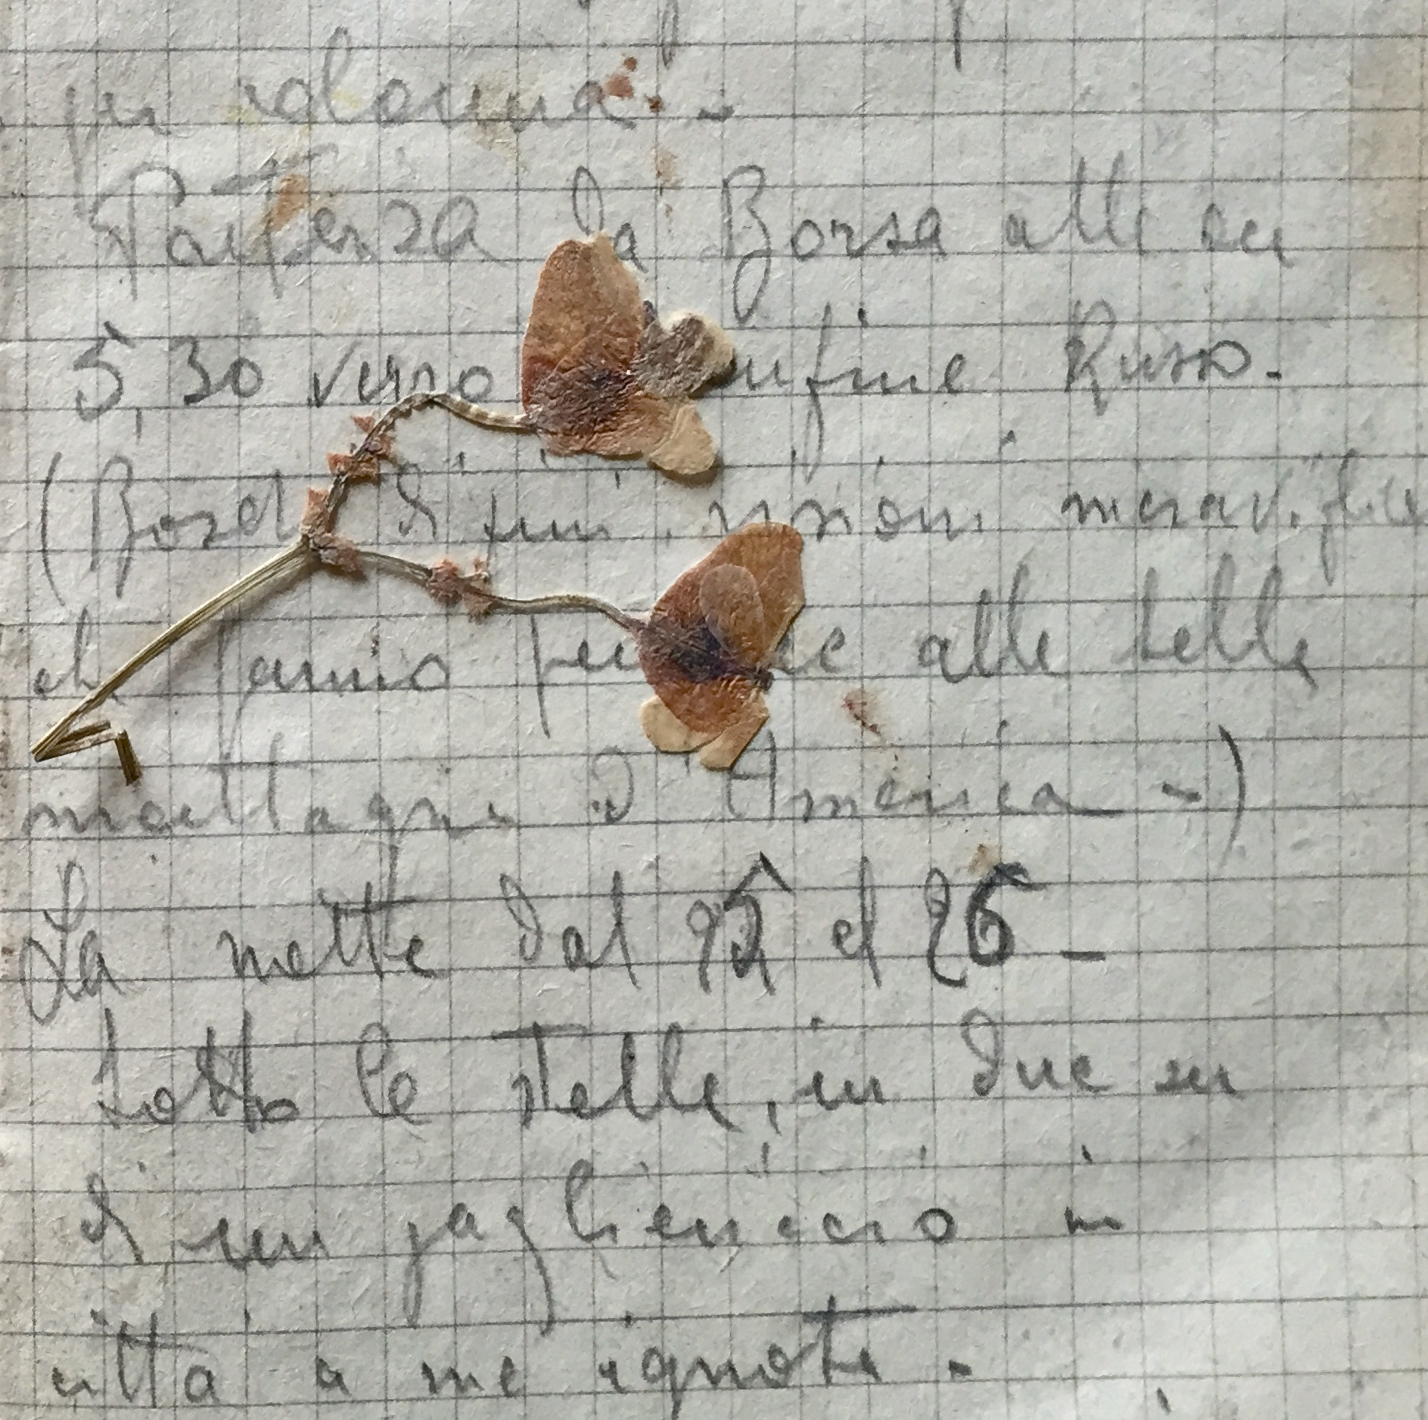 per colonna. -
Partenza da Borsa alle su
5,30 verso confine Russo.
(Borsa di fini visioni meraviglie
che fanno pensare alle belle
montagne d'America -)
La notte dal 25 al 26 -
sotto le stelle, in due su
di un pagliericcio in
città a me ignota.